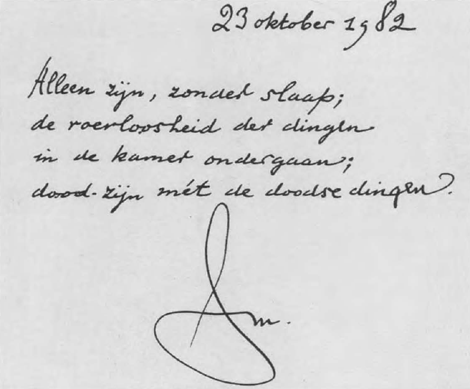 23 oktober 1982
Alleen zijn, zonder slaap;
de roerloosheid der dingen
in de kamer ondergaan;
dood-zijn mét de doodse dingen.